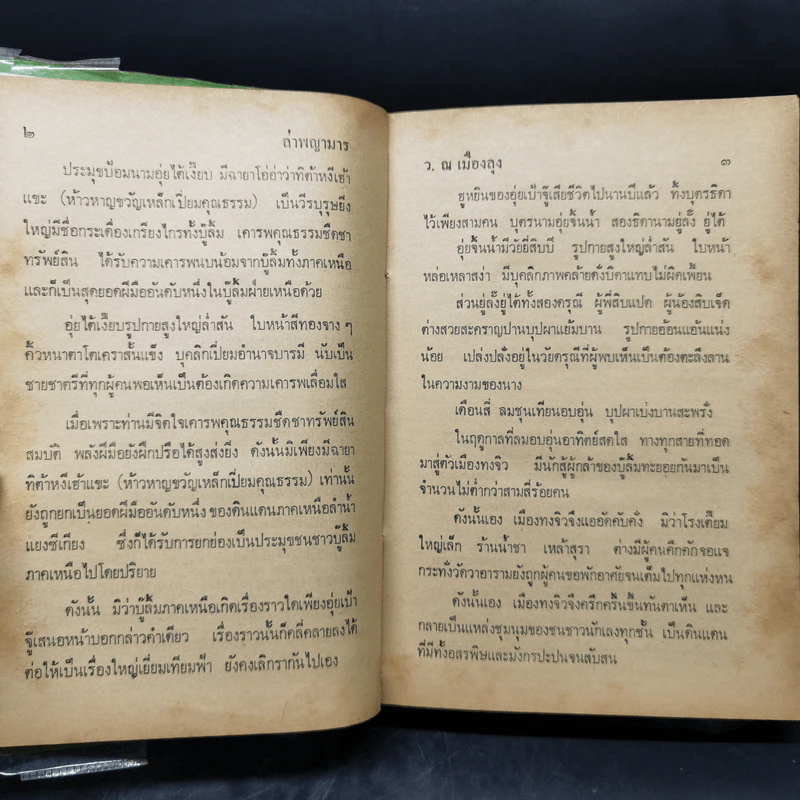 ๒
ล่าพญามาร
ประมุขป้อมนามอุ่ยไต้เงี๊ยบ มีฉายาโอ่อ่าว่าทิต้าหงีเฮ้า
แขะ (ห้าวหาญขวัญเหล็กเปี่ยมคุณธรรม) เป็นวีรบุรุษยิ่ง
ใหญ่มีชื่อกระเดื่องเกรียงไกรทั้งบู๊ลิ้ม เคารพคุณธรรมชืดชา
ทรัพย์สิน ได้รับความเคารพนบน้อมจากบู๊ลิ้มทั้งภาคเหนือ
และก็เป็นสุดยอดฝีมืออันดับหนึ่งในบู๊ลิ้มฝ่ายเหนือด้วย
อุ่ยไต้เงี๊ยบรูปกายสูงใหญ่ล่ำสัน ใบหน้าสีทองจาง ๆ
คิ้วหนาตาโตเคราสั้นแข็ง บุคลิกเปี่ยมอำนาจบารมี นับเป็น
ชายชาตรีที่ทุกผู้คนพอเห็นเป็นต้องเกิดความเคารพเลื่อมใส
เมื่อเพราะท่านมีจิตใจเคารพคุณธรรมชืดชาทรัพย์สิน
สมบัติ พลังฝีมือยังฝึกปรือได้สูงส่งยิ่ง ดังนั้นมิเพียงมีฉายา
ทิต้าหงีเฮ้าแขะ (ห้าวหาญขวัญเหล็กเปี่ยมคุณธรรม) เท่านั้น
ยังถูกยกเป็นยอดฝีมืออันดับหนึ่ง ของดินแดนภาคเหนือลำน้ำ
แยงซีเกียง ซึ่งก็ได้รับการยกย่องเป็นประมุขชนชาวบู๊ลิ้ม
ภาคเหนือไปโดยปริยาย
ดังนั้น มิว่าบู๊ลิ้มภาคเหนือเกิดเรื่องราวใดเพียงอุ่ยเป้า
จู๊เสนอหน้าบอกกล่าวคำเดียว เรื่องราวนั้นก็คลี่คลายลงได้
ต่อให้เป็นเรื่องใหญ่เยี่ยมเทียมฟ้า ยังคงเลิกรากันไปเอง
ว. ณ เมืองลุง
๓
ฮูหยินของอุ่ยเป้าจู๊เสียชีวิตไปนานปีแล้ว ทิ้งบุตรธิดา
ไว้เพียงสามคน บุตรนามอุ่ยจิ้นน้ำ สองธิดานามยู่ลั้ง ยู่ไต้
อุ่ยจิ้นน้ำมีวัยยี่สิบปี รูปกายสูงใหญ่ล่ำสัน ใบหน้า
หล่อเหลาสง่า มีบุคลิกภาพคล้ายดั่งบิดาแทบไม่ผิดเพี้ยน
ส่วนยู่ลั้งยู่ไต้ทั้งสองดรุณี ผู้พี่สิบแปด ผู้น้องสิบเจ็ด
ต่างสวยสะคราญปานบุปผาแย้มบาน รูปกายอ้อนแอ้นแน่ง
น้อย เปล่งปลั่งอยู่ในวัยดรุณีที่ผู้พบเห็นเป็นต้องตะลึงลาน
ในความงามของนาง
เดือนสี่ ลมชุนเทียนอบอุ่น บุปผาเบ่งบานสะพรั่ง
ในฤดูกาลที่ลมอบอุ่นอาทิตย์สดใส ทางทุกสายที่ทอด
มาสู่ตัวเมืองทงจิว มีนักสู้ผู้กล้าของบู๊ลิ้มทะยอยกันมาเป็น
จำนวนไม่ต่ำกว่าสามสี่ร้อยคน
ดังนั้นเอง เมืองทงจิวจึงแออัดคับคั่ง มิว่าโรงเตี๊ยม
ใหญ่เล็ก ร้านน้ำชา เหล้าสุรา ต่างมีผู้คนคึกคักจอแจ
กระทั่งวัดวาอารามยังถูกผู้คนขอพักอาศัยจนเต็มไปทุกแห่งหน
ดังนั้นเอง เมืองทงจิวจึงครึกครื้นขึ้นทันตาเห็น และ
กลายเป็นแหล่งชุมนุมของชนชาวนักเลงทุกชั้น เป็นดินแดน
ที่มีทั้งอสรพิษและมังกรปะปนจนสับสน